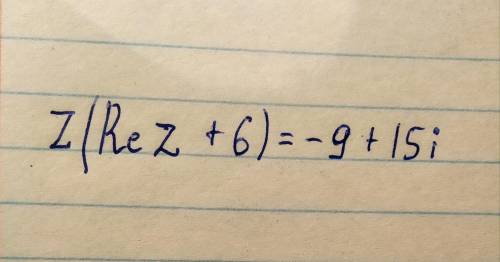 Z(Re Z + 6) = -9 + 15i